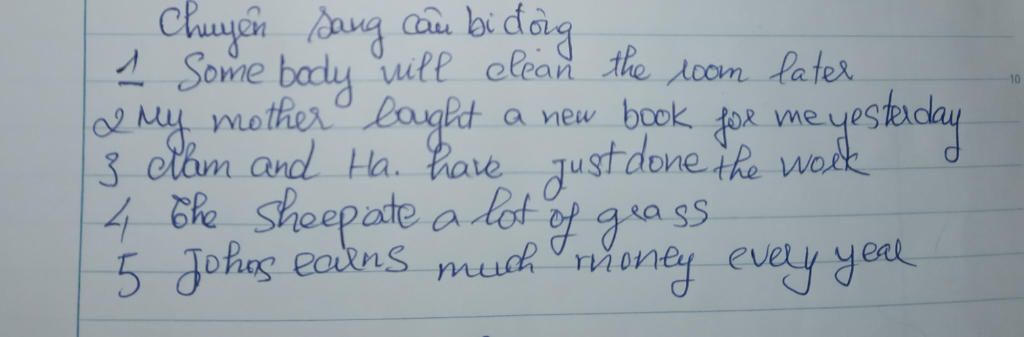 Chuyển sang câu bị động
1 Some body will clean the room later
2 My mother bought a new book for me yesterday
3 Nam and Ha. have just done the work
4, The sheep ate a lot of grass
5 Johns earns much money every year
10